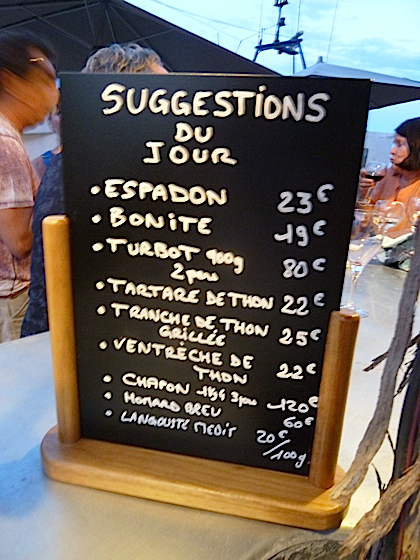 SUGGESTIONS
DU
JOUR
• ESPADON 23€
• BONITE 19€
• TURBOT 900g
2 pers 80€
• TARTARE DE THON 22€
• TRANCHE DE THON
GRILLÉE 25€
• VENTRÈCHE DE
THON 22€
• CHAPON 1kg 3 pers 120€
• HOMARD BLEU 60€
• LANGOUSTE MEDIT 20€
/100g